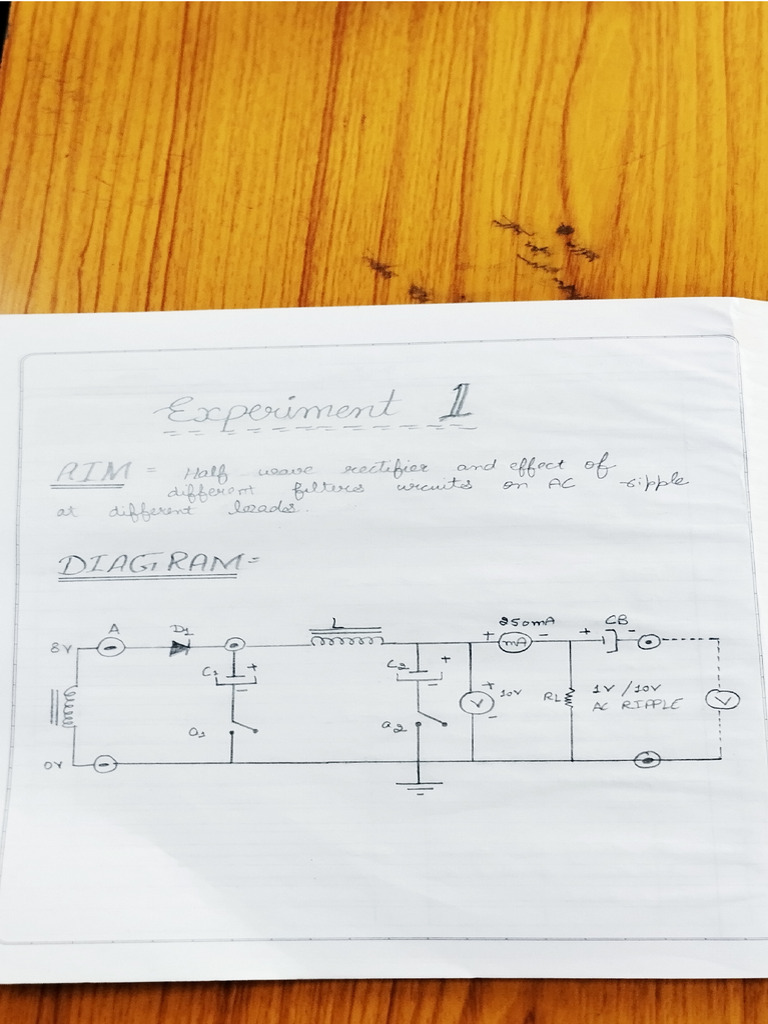 Experiment 1
AIM = Half wave rectifier and effect of
different filters circuits on AC ripple
at different loads.
DIAGRAM =
L
250mA
CB
A
D1
8V
+
-
mA
+
-
C1
+
-
C2
+
-
+
V
10V
-
RL
1V / 10V
AC RIPPLE
V
a1
a2
0V